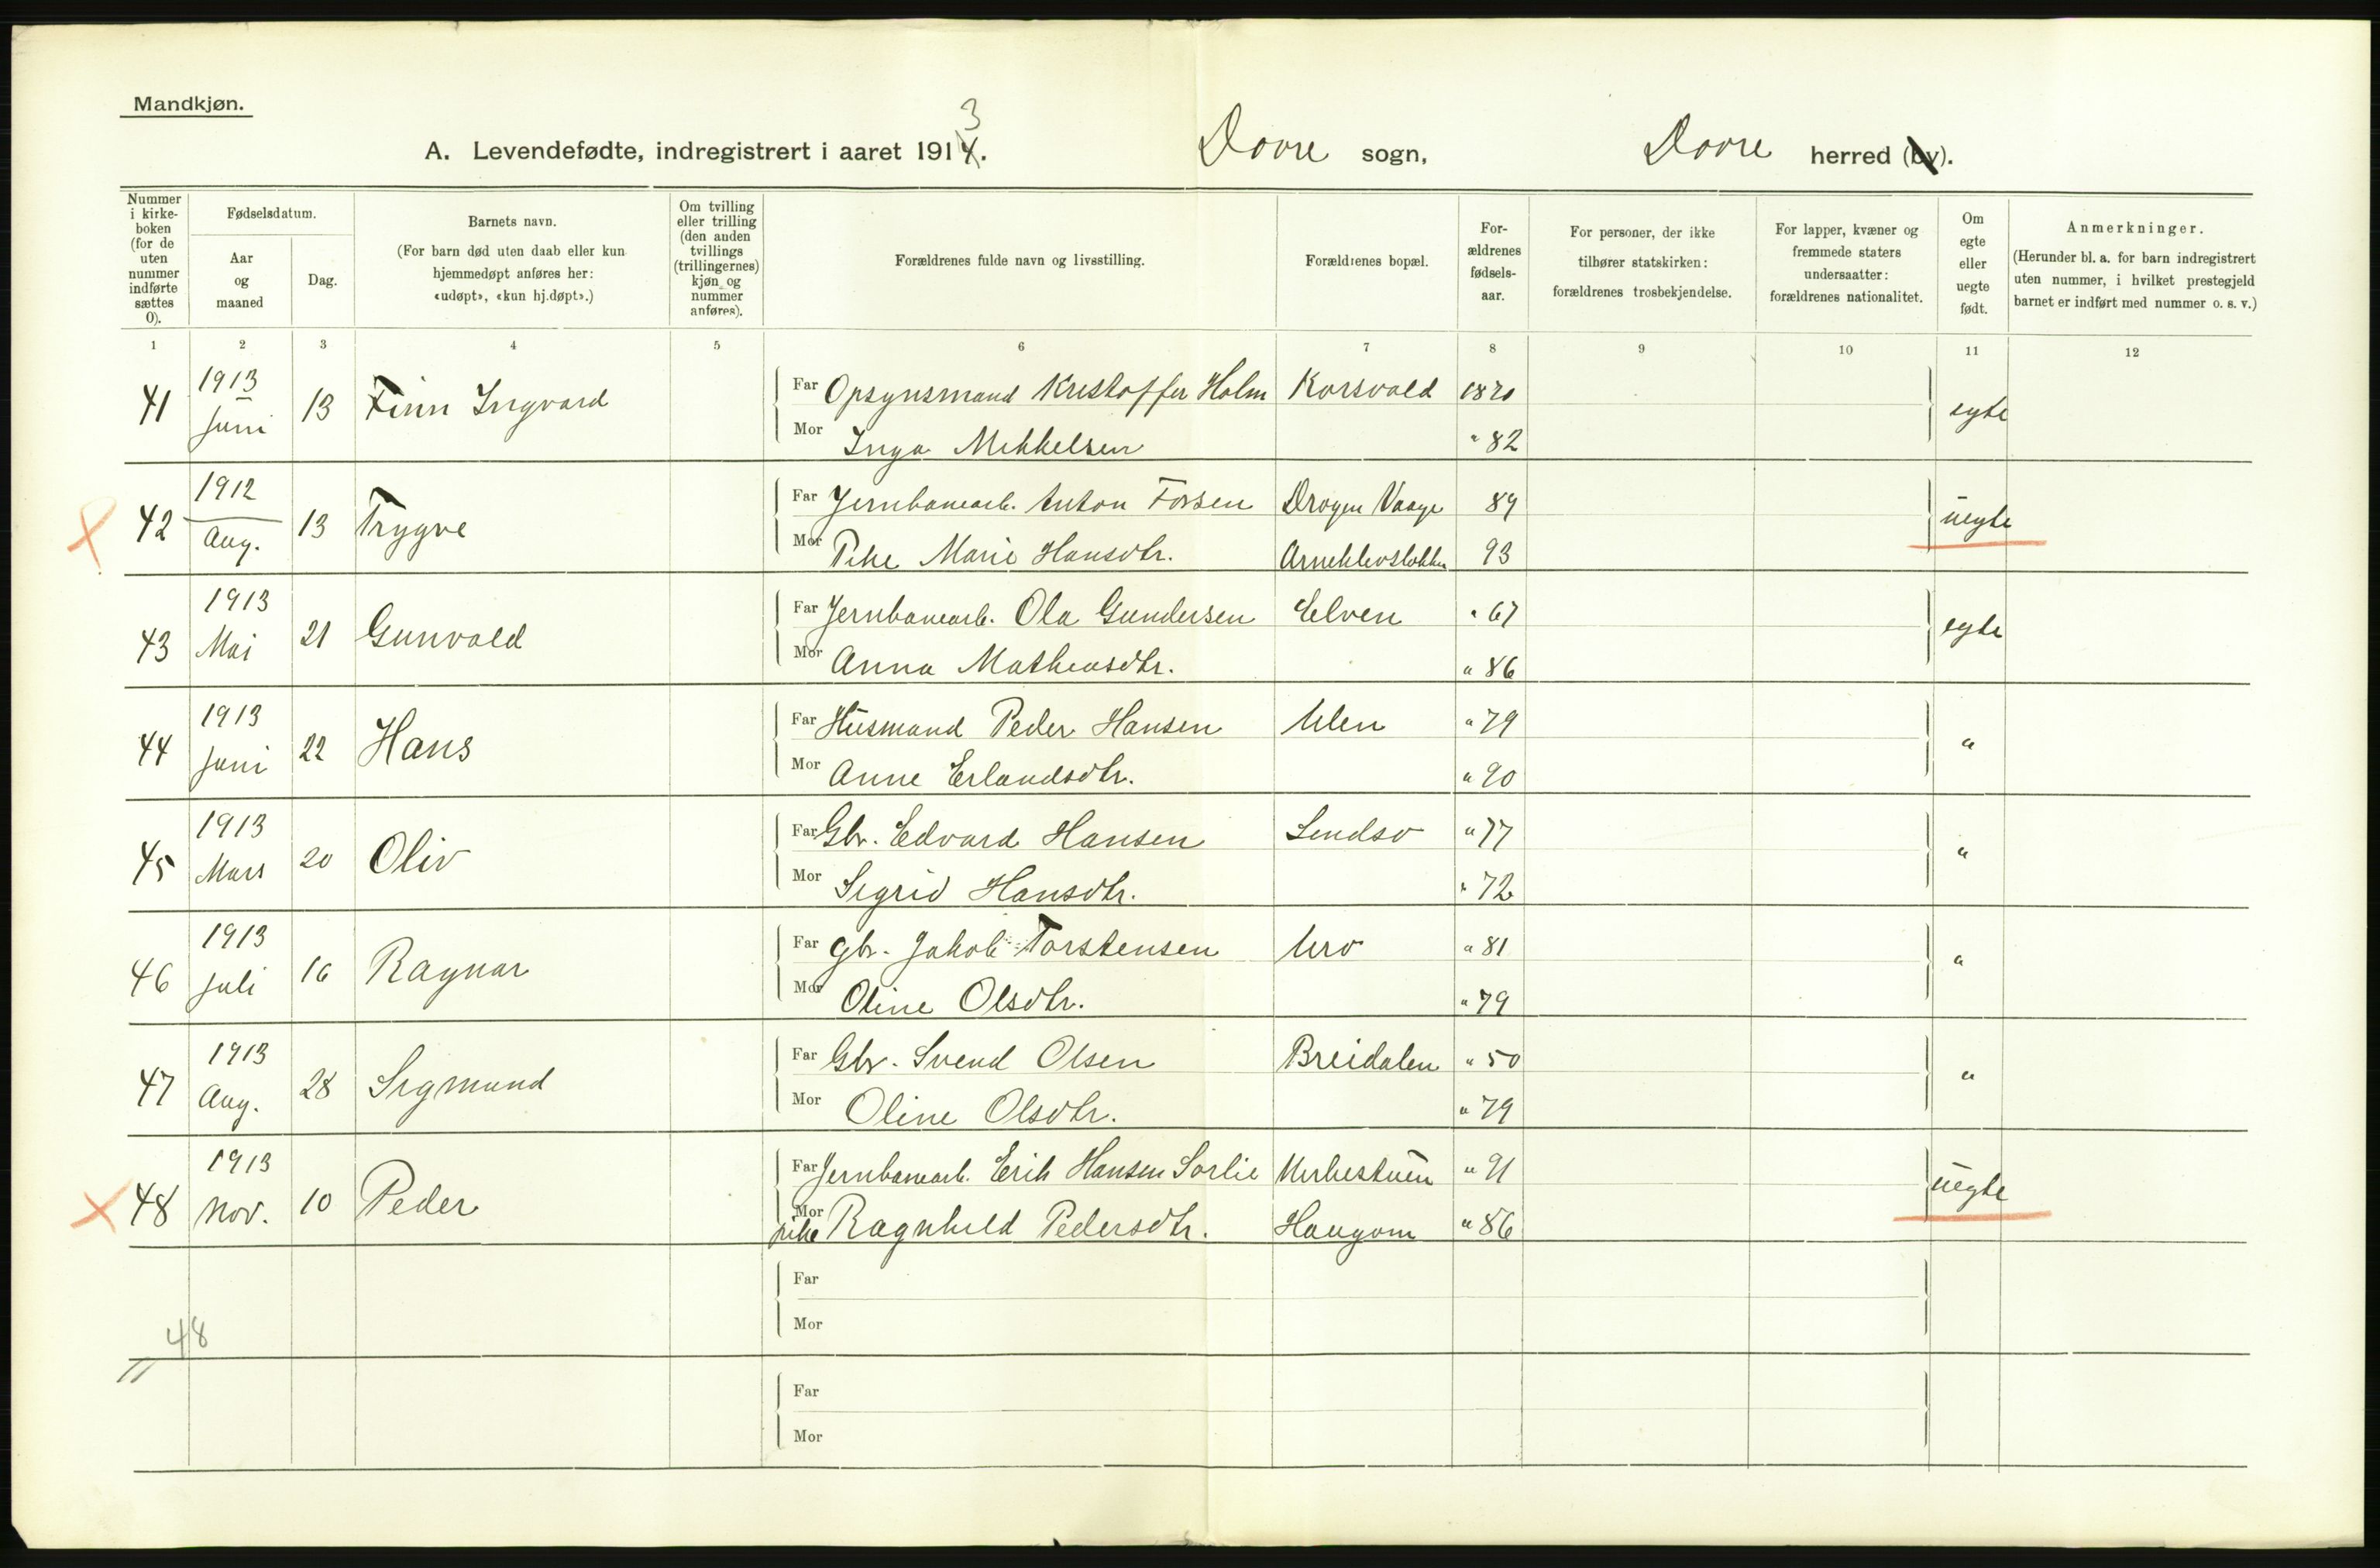 Mandkjøn.
3
A. Levendefødte, indregistrert i aaret 1914. Dovre sogn, Dovre herred (by).
Nummer i kirke-boken (for de uten nummer indførte sættes 0).
Fødselsdatum.
Aar og maaned
Dag.
Barnets navn.
(For barn død uten daab eller kun hjemmedøpt anføres her: «udøpt», «kun hj.døpt».)
Om tvilling eller trilling (den anden tvillings (trillingernes) kjøn og nummer anføres).
Forældrenes fulde navn og livsstilling.
Forældrenes bopæl.
For-ældrenes fødsels-aar.
For personer, der ikke tilhører statskirken: forældrenes trosbekjendelse.
For lapper, kvæner og fremmede staters undersaatter: forældrenes nationalitet.
Om egte eller uegte født.
Anmerkninger.
(Herunder bl. a. for barn indregistrert uten nummer, i hvilket prestegjeld barnet er indført med nummer o. s. v.)
1 2 3 4 5 6 7 8 9 10 11 12
41 1913 Juni 13 Finn Ingvard Far Opsynsmand Kristoffer Holm Korsvold 18 egte
Mor Inga Mikkelsen " 82
42 1912 Aug. 13 Trygve Far Jernbanearb. Anton Forsen Drogen Vaage 89 uegte
Mor Pike Marie Hansdtr. 93
43 1913 Mai 21 Gunvald Far Jernbanearb. Ola Gundersen Elven " 67 egte
Mor Anna Matheasdtr. " 86
44 1913 Juni 22 Hans Far Husmand Peder Hansen Ulen " 79 "
Mor Anne Erlandsdtr. " 90
45 1913 Mars 20 Oliv Far Gbr. Edvard Hansen Lindsø " 77 "
Mor Sigrid Hansdtr. " 72
46 1913 Juli 16 Ragnar Far Gbr. Jakob Torstensen Uro " 81 "
Mor Oline Olsdtr. " 79
47 1913 Aug. 28 Sigmund Far Gbr. Svend Olsen Breidalen " 50 "
Mor Oline Olsdtr. " 79
48 1913 Nov. 10 Peder Far Jernbanearb. Erik Hansen Sørlie " 91 uegte
Mor pike Ragnhild Pedersdtr. Haugom " 86
Far
Mor
48
Far
Mor